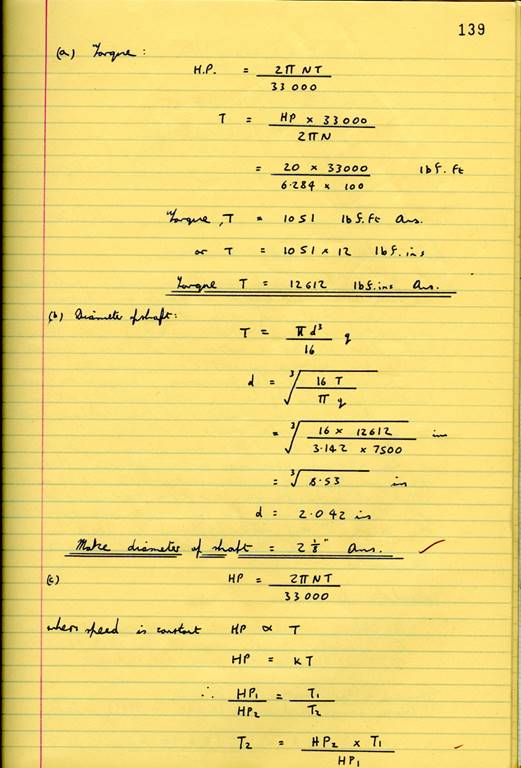 139
(a) Torque:
H.P. = 2πNT / 33000
T = HP × 33000 / 2πN
= 20 × 33000 / 6·284 × 100 lbf.ft
Torque, T = 1051 lbf.ft Ans.
or T = 1051 × 12 lbf.ins
Torque T = 12612 lbf.ins Ans.
(b) Diameter of shaft:
T = πd³ / 16 q
d = ³√(16 T / π q)
= ³√(16 × 12612 / 3·142 × 7500) in
= ³√8·53 in
d = 2·042 in
Make diameter of shaft = 2 1/8" Ans. ✓
(c) HP = 2πNT / 33000
when speed is constant HP ∝ T
HP = kT
∴ HP₁ / HP₂ = T₁ / T₂
T₂ = HP₂ × T₁ / HP₁